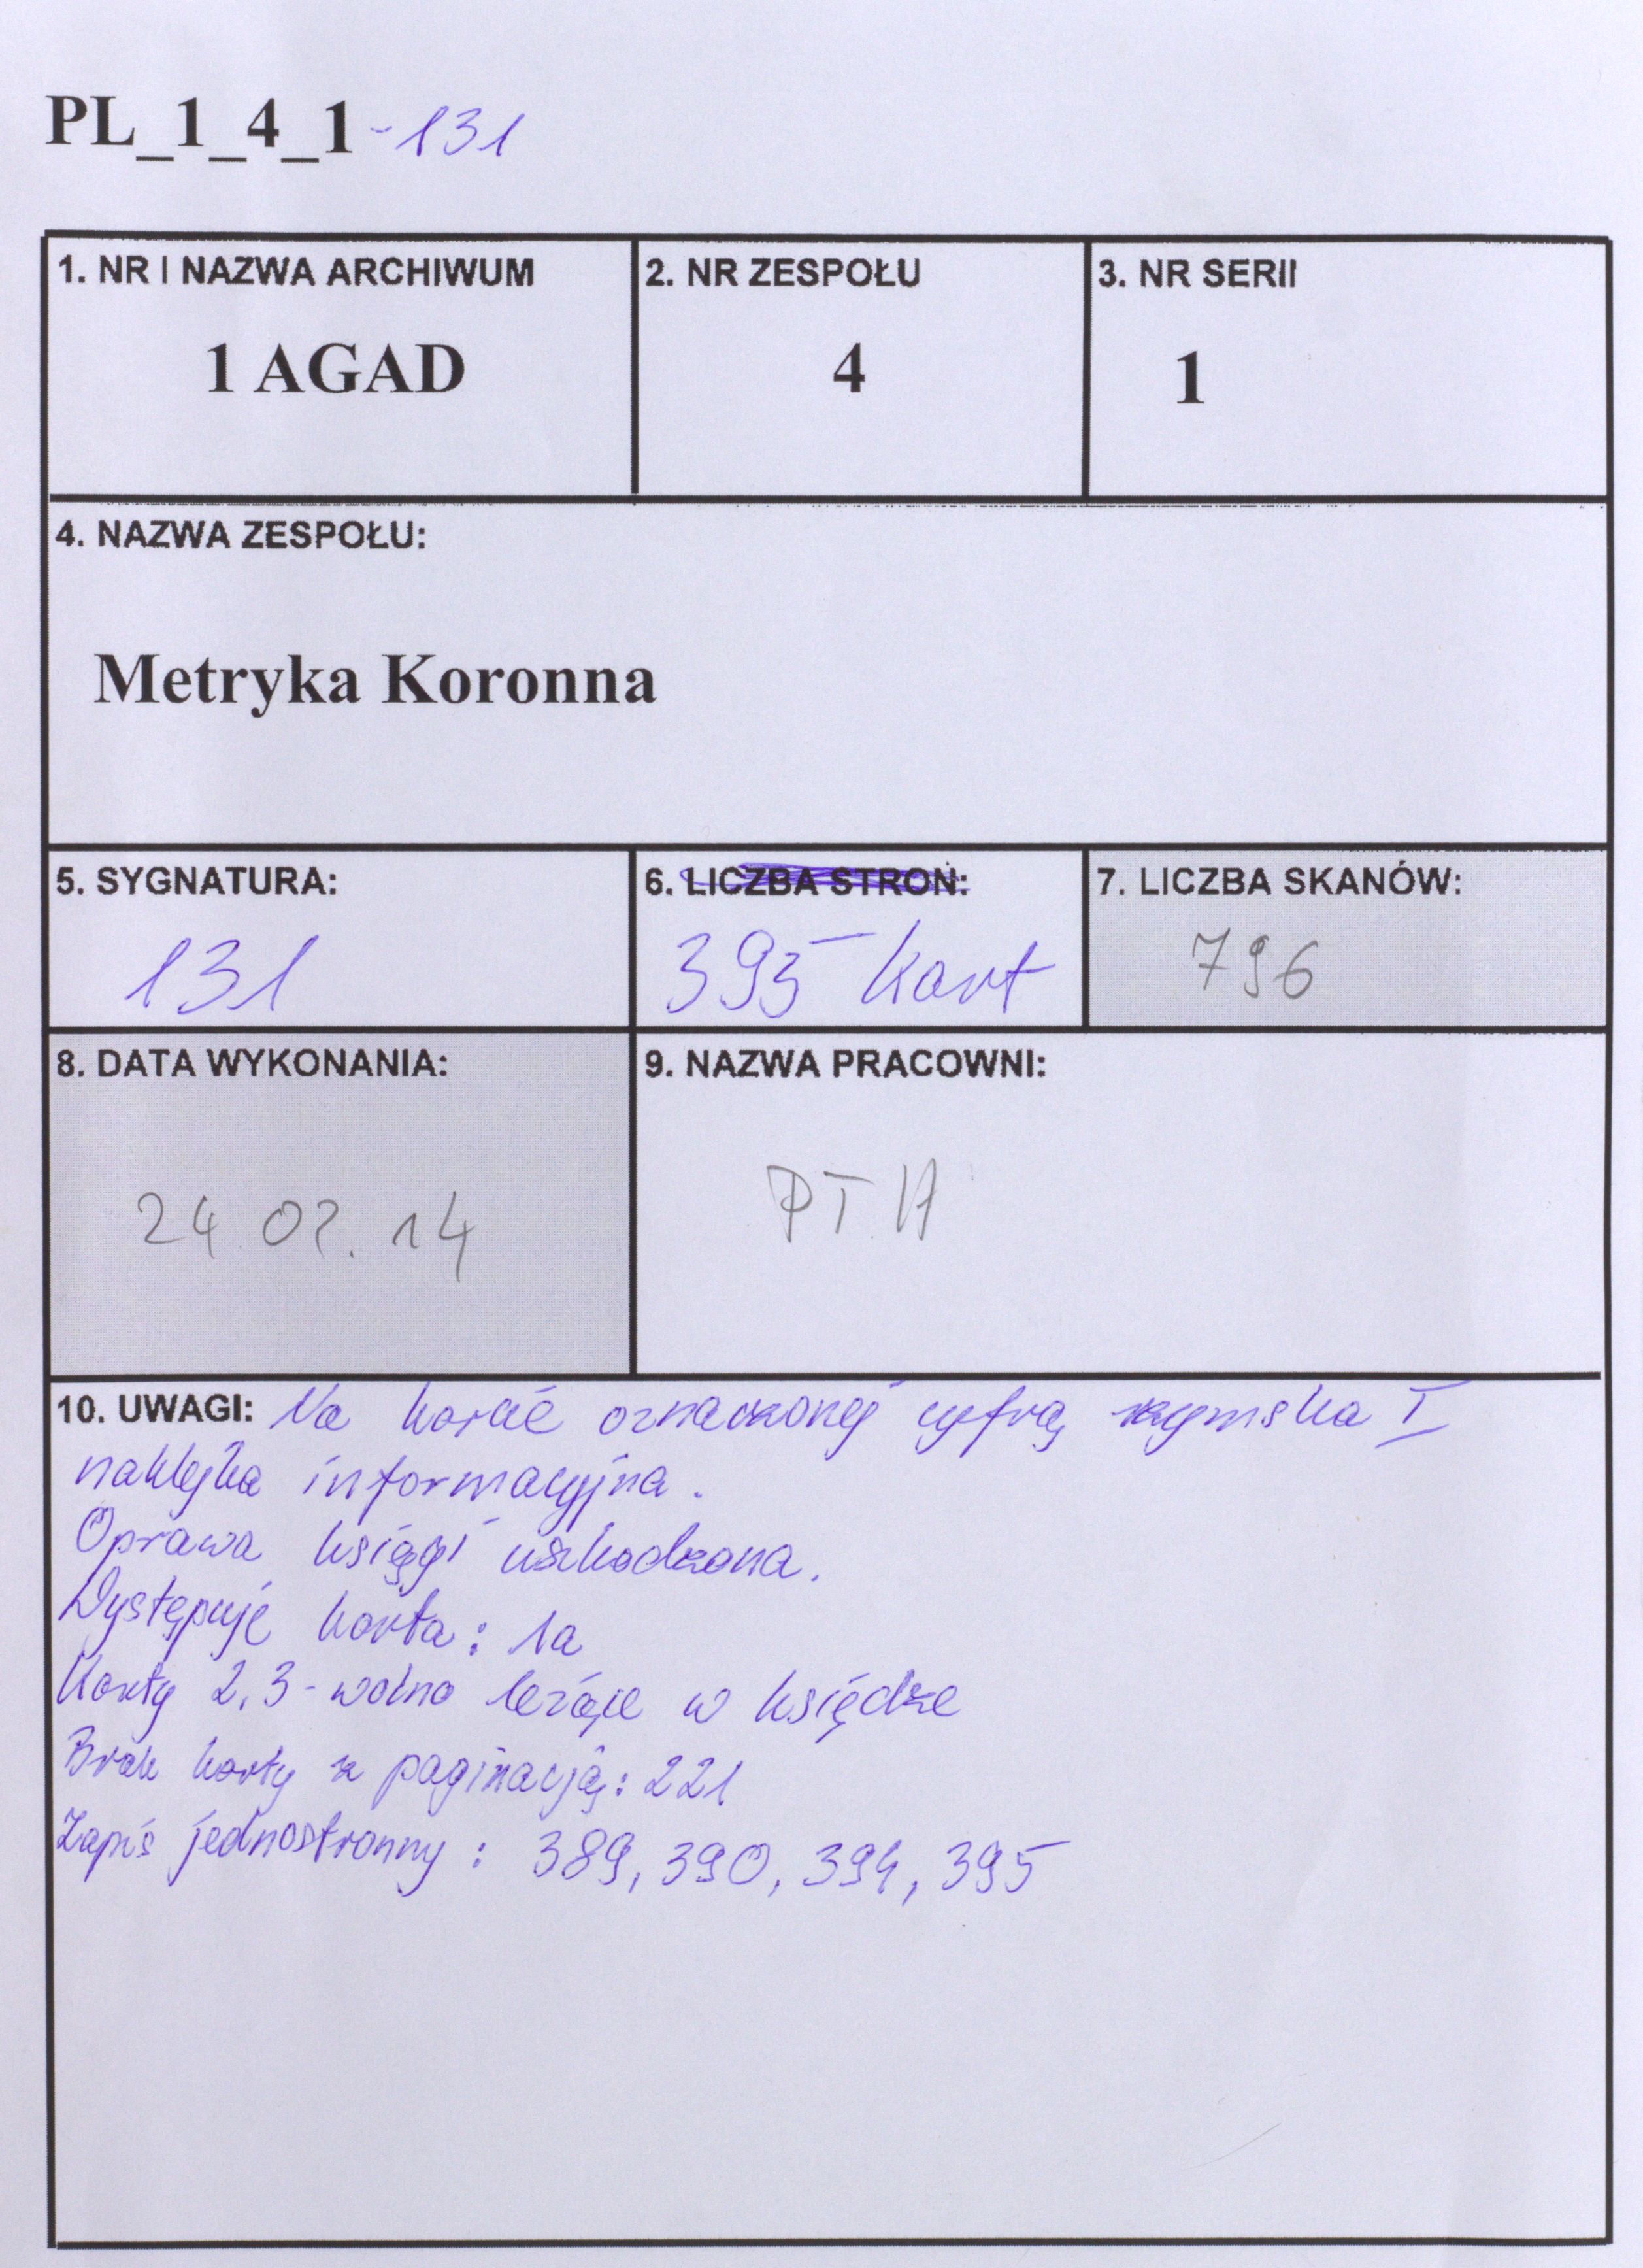 PL_1_4_1-131
1. NR I NAZWA ARCHIWUM
1 AGAD
2. NR ZESPOŁU
4
3. NR SERII
1
4. NAZWA ZESPOŁU:
Metryka Koronna
5. SYGNATURA:
131
6. LICZBA STRON:
395 kart
7. LICZBA SKANÓW:
796
8. DATA WYKONANIA:
24.02.14
9. NAZWA PRACOWNI:
PTH
10. UWAGI: Na karcie oznaczonej cyfrą rzymska I
naklejka informacyjna.
Oprawa księgi uszkodzona.
Występuje karta: 1a
Karty 2,3 - wolno leżące w księdze
Brak karty z paginacją: 221
Zapis jednostronny: 389, 390, 394, 395